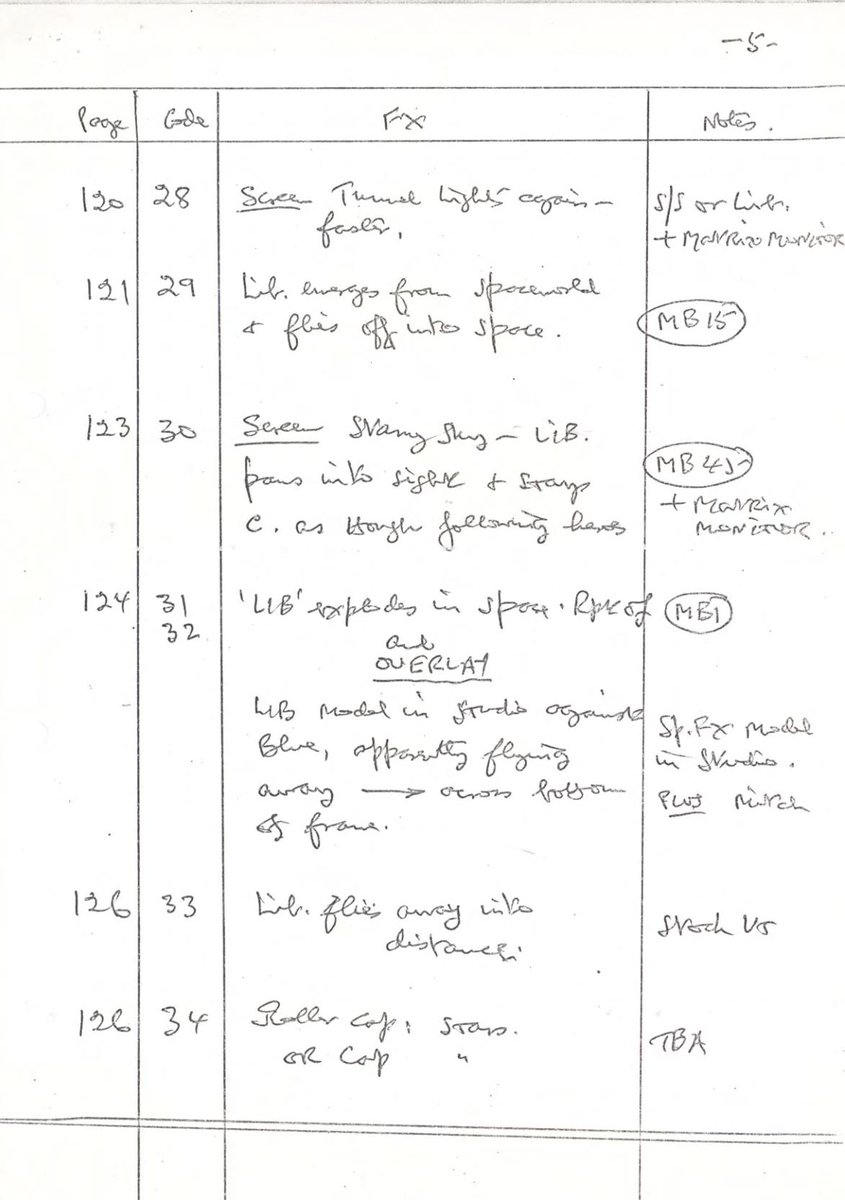 -5-
Page Code FX Notes.
120 28 Screen Tunnel Lights again – S/S or Lib.
faster. + MATRIX MONITOR
121 29 Lib. emerges from spaceworld
& flies off into space. MB 15
123 30 Screen Starry Sky – LIB.
pans into sight & stays MB 45
C. as though following + MATRIX
MONITOR.
124 31 'LIB' explodes in space. Rpt of MB1
32 and
OVERLAY
LIB Model in studio against
Blue, apparently flying Sp.FX Model
away → across bottom in Studio.
of frame. PLUS
126 33 Lib. flies away into Stock
distance.
126 34 Roller Cap: Stars. TBA
OR Cap "